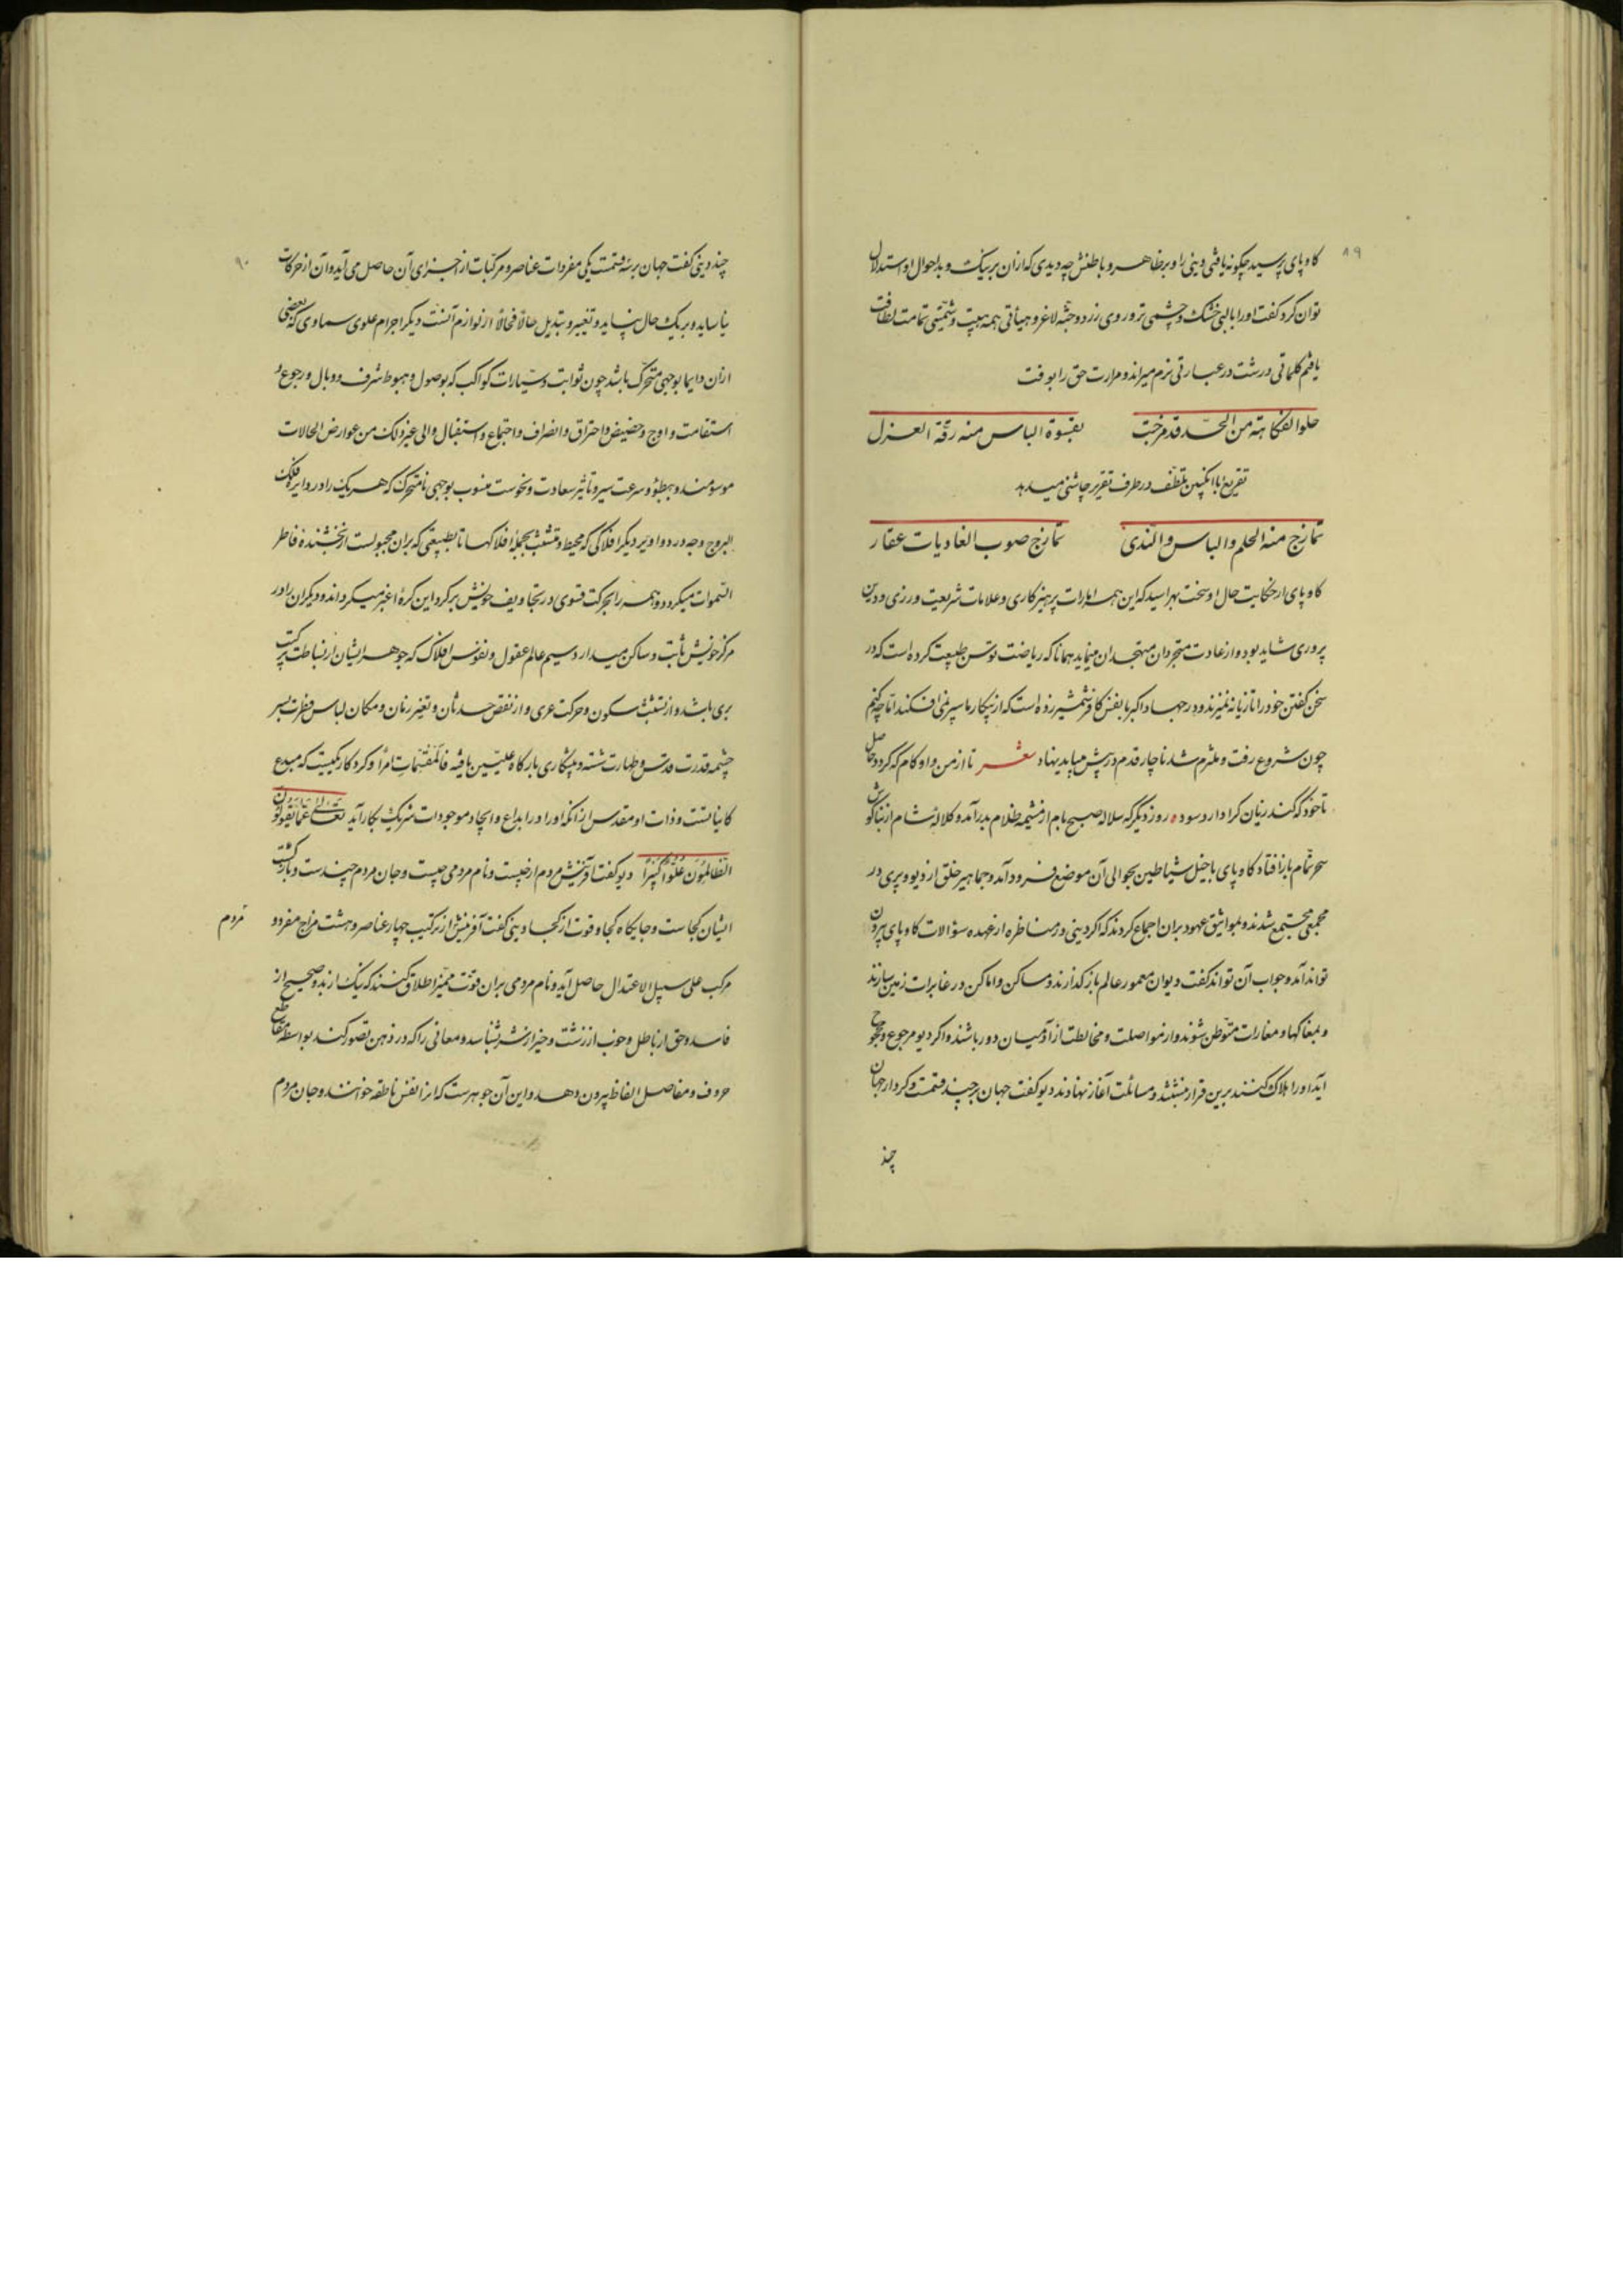 ۸۹
کاوپای پرسید چگونه یافتی دینی را و بر ظاهر و باطنش چه دیدی که از آن بر نیک و بد احوال او استدلال
توان کرد گفت او را با لبی خشک و چشمی تر و روی زرد و جثه لاغر و هیأتی همه هیبت و شیمتی تمامت لطافت
یافتم کلماتی درشت در عبارتی نرم میراند و مرارت حق را بوقت
حلو الفکاهة من الجد قد مزجت بقسوة الباس منه رقة الغزل
تقریع با انگبین تلطف در ظرف تقریر چاشنی میدهد
تمازج منه الحلم والباس والندی تمازج صوب الغادیات عقار
کاوپای از حکایت حال او سخت بهراسید که این همه امارات پرهیزکاری و علامات شریعت ورزی و دین
پروری شاید بود و از عادت متجردان متهجدان مینماید همانا که ریاضت توسن طبیعت کرده است که در
سخن گفتن خود را تازیانه نمیزند و در جهاد اکبر با نفس کافر شمشیر زده است که از پیکار ما سپر نمی افکند اما چه کنم
چون شروع رفت و ملتزم شد ناچار قدم در پیش میباید نهاد شعر تا از من و او کام که گردد حاصل
تا خود که کند زیان کرا دارد سود روز دیگر که سلاله صبح بام از مشیمه ظلام بدر آمد و کلاله شام از بناگوش
سحر تمام باز افتاد کاوپای با خیل شیاطین بحوالی آن موضع فرود آمد و جماهیر خلق از دیو و پری در
مجمعی مجتمع شدند و بمواثیق عهود بران اجماع کردند که اگر دینی در مناظره از عهده سؤالات کاوپای بیرون
تواند آمد و جواب آن تواند گفت دیوان معمور عالم باز گذارند و مساکن و اماکن در غابرات زمین سازند
و بمغاکها و مغارات متوطن شوند و از مواصلت و مخالطت از آدمیان دور باشند و اگر دیو مرجوع و محجوج
آید او را هلاک کنند برین قرار بنشستند و مسائلت آغاز نهادند دیو گفت جهان بر چند قسمت و کردار جهان
چند
۹۰
چند دینی گفت جهان بر سه قسمت یکی مفردات عناصر و مرکبات از اجزای آن حاصل می آید و آن از حرکات
نیاساید و بر یک حال نپاید و تغییر و تبدیل حالا فحالا از لوازم آنست دیگر اجرام علوی سماوی که بعضی
ازان دایما بوجهی متحرک باشد چون ثوابت و سیارات کواکب که بوصول و هبوط شرف و وبال و رجوع و
استقامت و اوج و حضیض و احتراق و انصراف و اجتماع و استقبال والی غیر ذلک من عوارض الحالات
موسومند و ببطؤ و سرعت سیر و تاثیر سعادت و نحوست منسوب بوجهی نامتحرک که هر یک را در دایره فلک
البروج وجه در دوا ویر دیگر افلاکی که محیط و متشبث بجمله افلاکها تا بطبیعتی که بران مجبولست از بخشنده فاطر
السموات میگردد و همه را بحرکت قسری در تجاویف خویش بر گرد این کره اغبر میگرداند و دیگران را در
مرکز خویش ثابت و ساکن میدارد سیم عالم عقول و نفوس افلاک که جوهر ایشان از بساطت ترکیب
بری باشد و از تشبث سکون و حرکت عری و از نقص حدثان و تغیر زمان و مکان لباس فطرت بسر
چشمه قدرت قدس و طهارت شسته و پیشکاری بارگاه علیین یافته فالمقسمات امرا و کردکار یکیست که مبدع
کایناتست و ذات او مقدس از آنکه او را در ابداع و ایجاد موجودات شریک بکار آید تعالی عما یقولون
الظالمون علوا کبیرا دیو گفت آفرینش مردم از چیست و نام مردمی چیست و جان مردم چندست و بازگشت
ایشان کجاست و جایگاه کجا و قوت از کجا دینی گفت آفرینش از ترکیب چهار عناصر و هشت مزاج مفرد و
مردم
مرکب علی سبیل الاعتدال حاصل آید و نام مردمی بران قوت ممیز اطلاق کنند که نیک از بد و صحیح از
فاسد و حق از باطل و خوب از زشت و خیر از شر بشناسد و معانی را که در ذهن تصور کند بواسطه مقاطع
حروف و مفاصل الفاظ بیرون دهد و این آن جوهرست که انرا نفس ناطقه خوانند و جان مردم